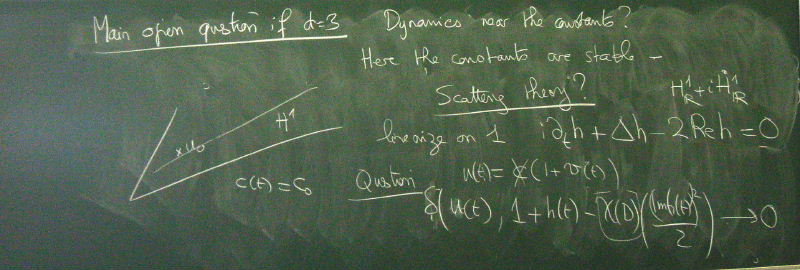 Main open question if d=3 Dynamics near the constants?
Here the constants are stable –
Scattering theory? H¹_ℝ + i Ḣ¹_ℝ
H¹
×u₀
linearize on 1 i∂ₜh + Δh – 2 Re h = 0
c(t) = c₀
Question u(t) = (1 + v(t))
δ(u(t), 1 + h(t) – χ(D)((Im h(t))²/2)) → 0